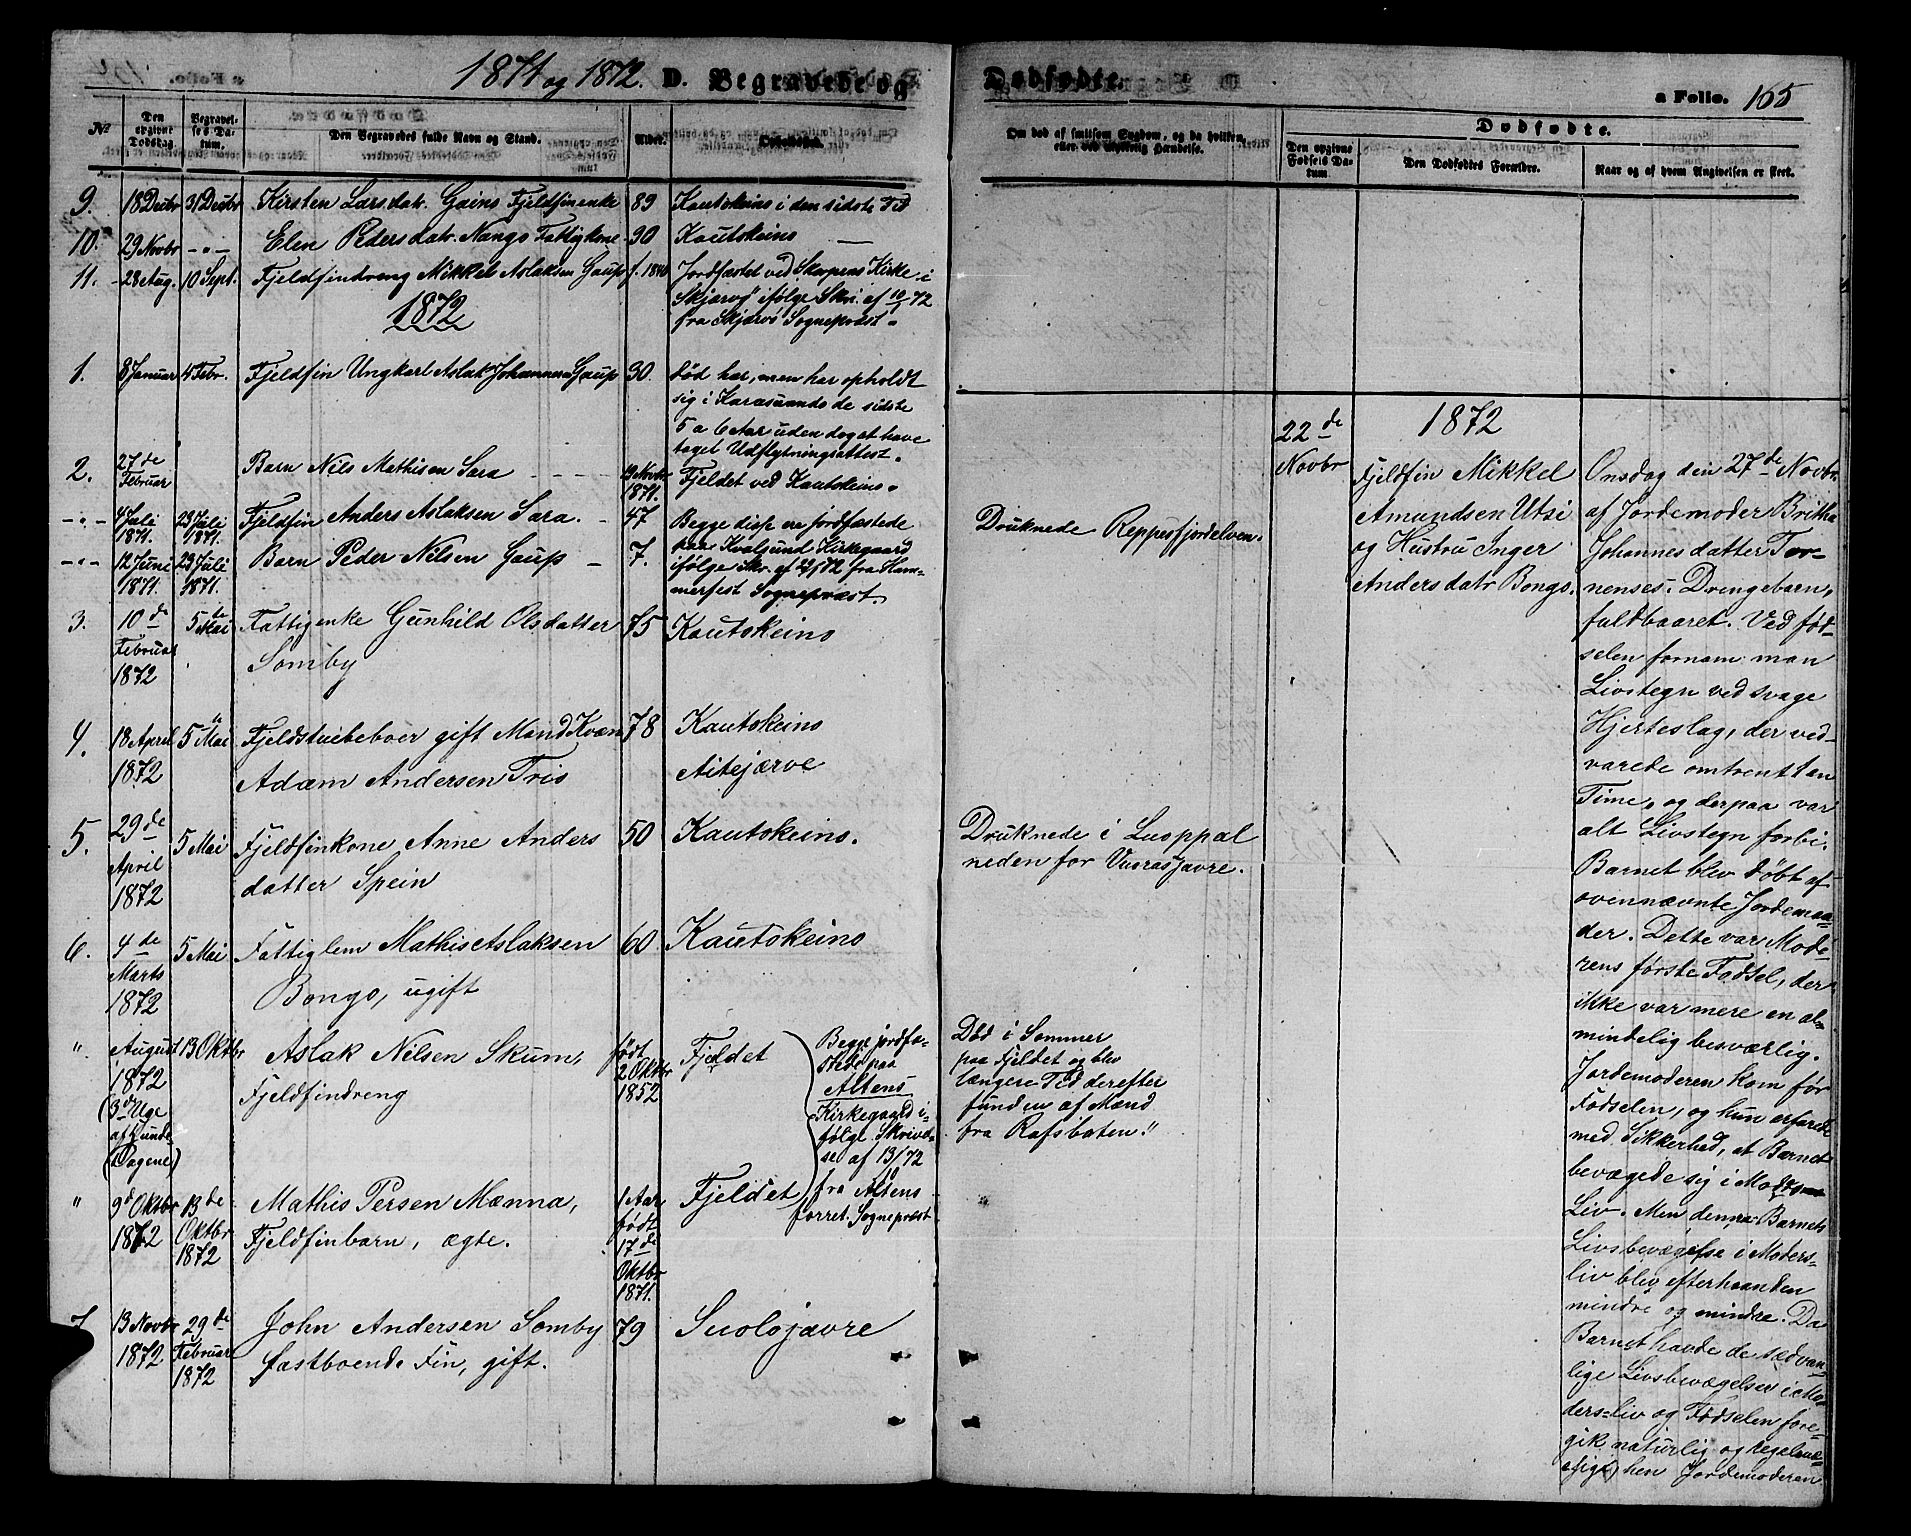 1871 og 1872. D. Begravede og
Dødfødte.
a Folio. 165
No
Den opgivne Dødsdag.
Begravelses Datum.
Den Begravedes fulde Navn og Stand.
Alder.
Opholdssted.
Om død af smitsom Sygdom, og da hvilken, eller ved ulykkelig Hændelse.
Dødfødte.
Den opgivne Fødsels Datum.
Den Dødfødtes Forældre.
Naar og af hvem Angivelsen er skeet.
9. 18 Decbr 31 Decbr Kirsten Larsdatr. Gaino Fjeldfinenke 89 Kautokeino i den sidste Tid
10. 29 Novbr -"- Elen Pedersdatr. Nango Fattigkone 90 Kautokeino
11. 28 Aug. 10 Sept. Fjeldfindreng Mikkel Aslaksen Gaup f. 1846 Jordfæstet ved Skorpens Kirke i
Skjærvø ifølge Skr. af 10/1 72
fra Skjærvø Sognepræst.
1872
1. 8 Januar 4 Febr. Fjeldfin Ungkarl Aslak Johannesen Gaup 30. død her, men har opholdt
sig i Karasuando de sidste
5 a 6 Aar uden dog at have
taget Udflytningsattest.
2. 27de Februar Barn Nils Mathisen Sara 19 Novbr 1871. Fjeldet ved Kautokeino.
-"- 4 Juli 1871. 23 Juli 1871. Fjeldfin Anders Aslaksen Sara. 47 Begge disse ere jordfæstede
-"- 12 Juni 1871. 23 Juli 1871. Barn Peder Nilsen Gaup 7. paa Kvalsund Kirkegaard
ifølge Skr. af 22/1 72 fra Ham-
merfest Sognepræst.
3. 10de Februar 1872 5te Mai Fattigenke Gunhild Olsdatter 75 Kautokeino
Somby
4. 18 April 1872 5te Mai Fjeldstuebeboer gift Mand Kvæn 78 Kautokeino
Adam Andersen Triis Aitejærve
5. 29de April 1872 5 Mai Fjeldfinkone Anne Anders 50 Kautokeino.
datter Spein
Druknede i Luoppal
neden for Vuorasjavre.
6. 4de Marts 1872 5 Mai Fattiglem Mathis Aslaksen 60 Kautokeino
Bongo, ugift
" August 1872 (3de Uge af Hunde Dagene) 13 Oktbr Aslak Nilsen Skum, født 2 Oktbr 1852 Fjeldet
Fjeldfindreng
Begge jordfæ-
stede paa
Altens
Kirkegaard i-
følge Skrivel-
se af 13/10 72
fra Altens
forret. Sognepræst
Død i Sommer
paa Fjeldet og blev
længere Tid derefter
funden af Mænd
fra Rafsboten."
" 9d Oktbr 1872 13de Oktbr 1872 Mathis Persen Mænna, 1 Aar født 17de Oktbr 1871. Fjeldet
Fjeldfinbarn, ægte.
7. 13 Novbr 1872 29de Februar 1872 John Andersen Somby 79 Suolojavre
fastboende Fin, gift.
Druknede Reppesfjordelven.
22de Novbr
1872
Fjeldfin Mikkel
Amundsen Utsi
og Hustru Inger
Andersdatr Bongo.
Onsdag den 27de Novbr.
af Jordemoder Britha
Johannesdatter Tor-
nenses: Drengebarn,
fuldbaaret. Ved fød-
selen fornam man
Livstegn ved svage
Hjerteslag, der ved-
varede omtrent 1 en
Time, og derpaa var
alt Livstegn forbi.
Barnet blev døbt af
ovennævnte Jordemo-
der. Dette var Mode-
rens første Fødsel, der
ikke var mere en al-
mindelig besværlig.
Jordemoderen kom før
Fødselen, og hun erfarede
med Sikkerhed, at Barnet
bevægede sig i Moders
Liv. Men denne Barnets
Livsbevægelse i Moders-
liv blev efterhaanden
mindre og mindre. Da
Barnet havde de sædvan-
lige Livsbevægelser i Mo-
ders-liv og Fødselen fore-
gik naturlig og regelmæs-
sigt, hen Jordemoderen